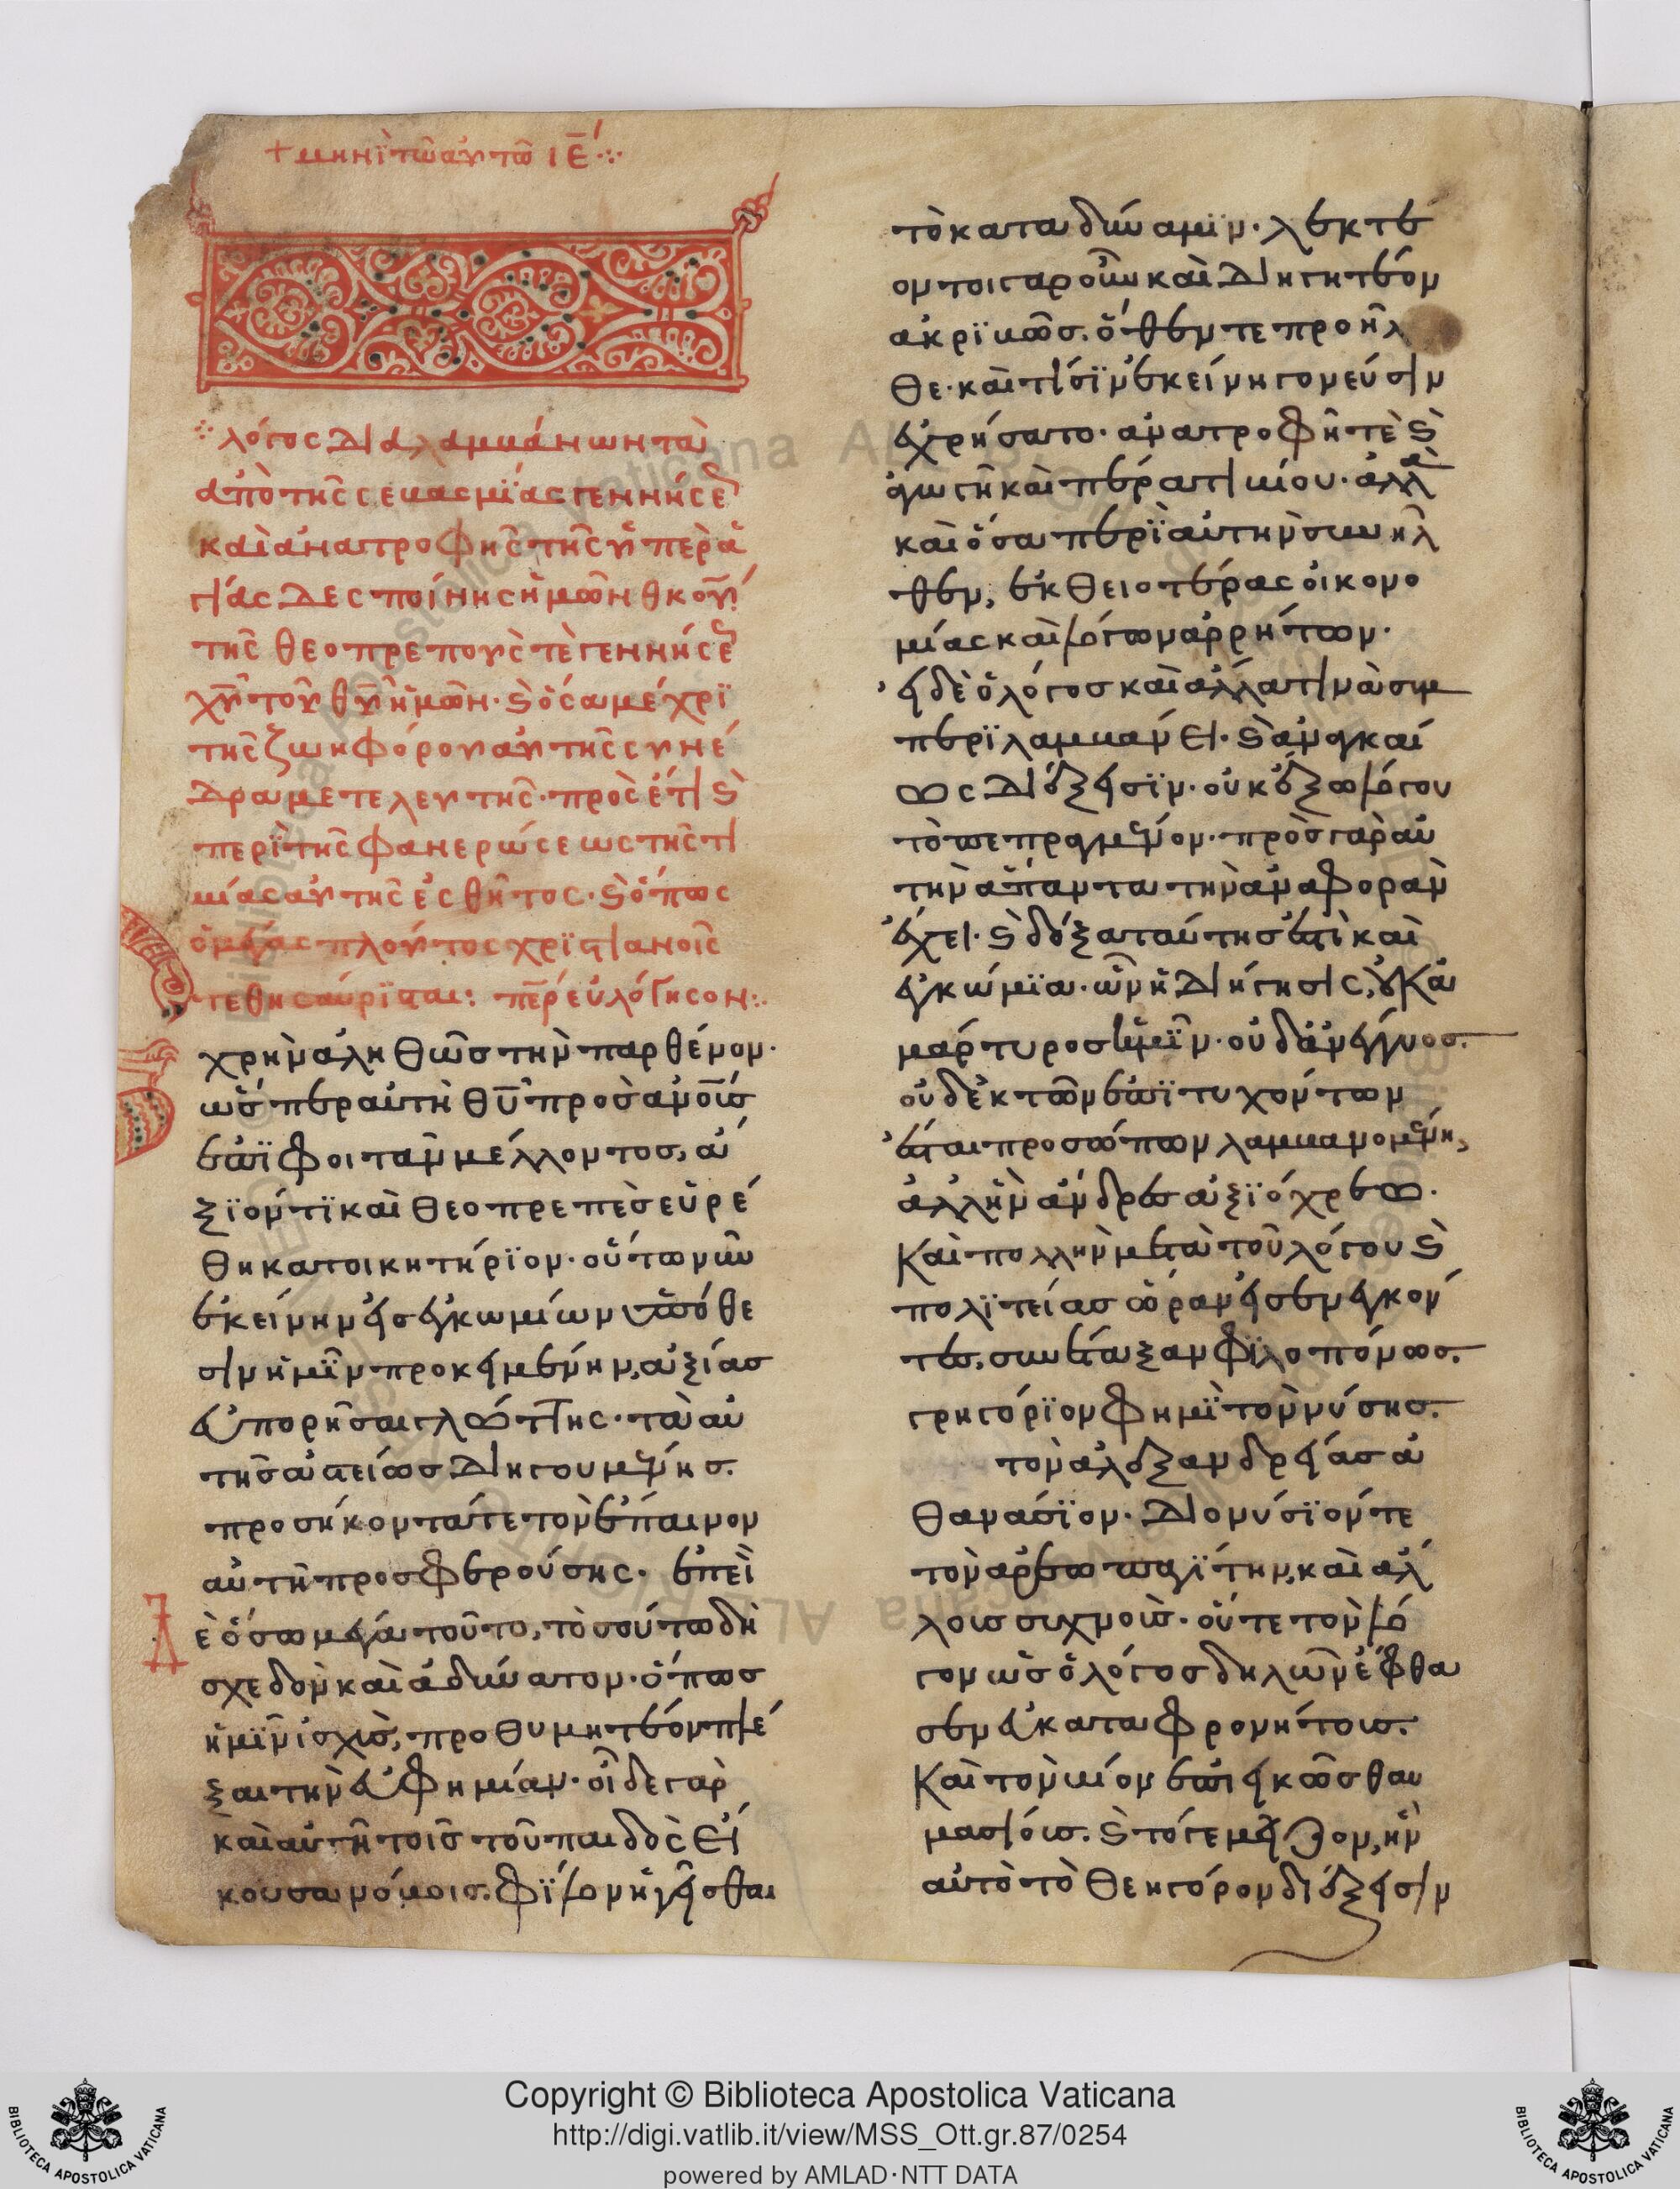 + μηνὶ τῶ αὐτῶ ιε´
λόγος διαλαμβάνων τὰ
ἀπὸ τῆς σεβασμίας γεννήσε
καὶ ἀνατροφῆς τῆς ὑπερα
γίας δεσποίνης ἡμῶν θκου·
τῆς θεοπρεποῦς τὲ γεννήσε
χυ τοῦ θυ ἡμῶν· ϗ ὅσα μέχρι
τῆς ζωηφόρου αὐτῆς συνέ
δραμε τελευτῆς· πρὸς ἔτι ϗ
περὶ τῆς φανερώσεως τῆς τι
μίας αὐτῆς ἐσθῆτος· ϗ ὅπως
ὁ μέγας πλοῦτος χριστιανοῖς
τεθησαύρισται: περ εὐλόγησον:
χρὴν ἀληθῶς τὴν παρθένον·
ὥσπερ αὐτὴ θυ πρὸς ανοις
ἐπιφοιτᾶν μέλλοντος, ἀ
ξιόντι καὶ θεοπρεπὲς εὑρέ
θη κατοικητήριον· οὕτω νῦν
ἐκείνην εἰς ἐγκωμίων ὑπόθε
σιν ἡμῖν προκειμένην, ἀξίας
εὐπορῆσαι γλώττης· τὰ αὐ
τῆς ἀστείως διηγουμένης.
προσήκοντά τε τὸν ἔπαινον
αὐτῆ προσφερούσης· ἐπεὶ
δὲ ὅσω μέγα τοῦτο, τοσούτω δὴ
σχεδὸν καὶ ἀδύνατον· ὅπως
ἡμῖν ἰσχὺς, προθυμητέον πλέ
ξαι τὴν εὐφημίαν· οἶδε γὰρ
καὶ αὐτὴ τοῖς τοῦ παιδὸς εἴ
κουσα νόμοις. φίλον ἡγεῖσθαι
τὸ κατὰ δύναμιν· λεκτέ
ον τοιγαροῦν καὶ διηγητέον
ἀκριβῶς. ὅθεν τε προῆλ
θε· καὶ τίσιν ἐκείνη γονεῦσιν
ἐχρήσατο· ἀνατροφῆ τὲ ϗ
ἀγωγῆ καὶ πέρατι βίου· ἀλλὰ
καὶ ὅσα περὶ αὐτὴν συνῆλ
θεν, ἐκ θειοτέρας οἰκονο
μίας καὶ λόγων ἀρρήτων·
εἰ δὲ ὁ λόγος καὶ ἄλλα τινὰ συμ
περιλαμβάνει· ϗ ἀναγκαί
ως διέξεισιν· οὐκ ἔξω λόγου
τὸ πεπραγμένον· πρὸς γὰρ αὐ
τὴν ἅπαντα τὴν ἀναφορὰν
ἔχει· ϗ δόξα ταύτης ἐστὶ καὶ
ἐγκώμια· ὧν ἡ διήγησις, οὐκ ἀ
μάρτυρος ἡμῖν· οὐδ' ἀνέγγυος.
οὐδ' ἐκ τῶν ἐπιτυχόντων
ἔσται προσώπων λαμβανομένη,
ἀλλ' ἣν ἄνδρες ἀξιόχρεω·
Καὶ πολλὴν μετὰ τοῦ λόγου ϗ
πολιτείας ὥραν εἰσενεγκόν
τες, συνετάξαν φιλοπόνως.
γρηγόριον φημὶ τὸν νύσης.
τὸν ἀλεξανδρείας ἀ
θανάσιον· διονύσιόν τε
τὸν ἀρεωπαγίτην, καὶ ἄλ
λοις συχνοῖς· οὔτε τὸν λό
γον ὡς ὁ λόγος δηλῶν ἔφθα
σεν εὐκαταφρονήτοις.
Καὶ τὸν βίον ἐπιεικῶς θαυ
μασίοις. ϗ τότε μεῖζον, ἢν
αὐτὸ τὸ θεηγόρον διέξεισιν
Copyright © Biblioteca Apostolica Vaticana
http://digi.vatlib.it/view/MSS_Ott.gr.87/0254
powered by AMLAD·NTT DATA
BIBLIOTECA APOSTOLICA VATICANA
BIBLIOTECA APOSTOLICA VATICANA